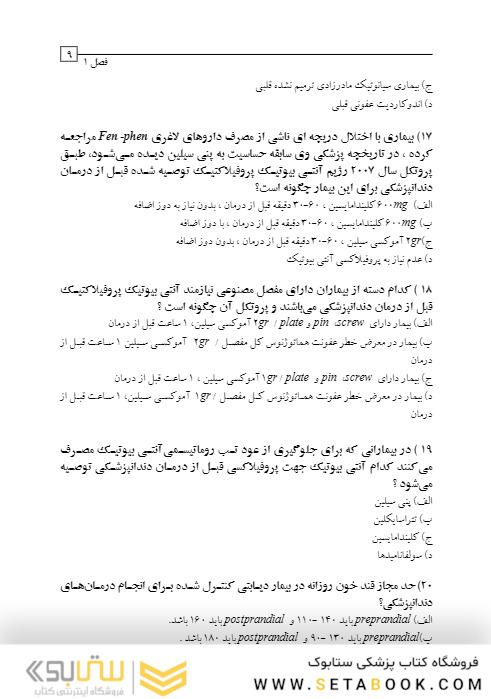 ۹
فصل ۱
ج) بیماری سیانوتیک مادرزادی ترمیم نشده قلبی
د) اندوکاردیت عفونی قبلی
۱۷) بیماری با اختلال دریچه ای ناشی از مصرف داروهای لاغری Fen-phen مراجعه
کرده ، در تاریخچه پزشکی وی سابقه حساسیت به پنی سیلین دیده می‌شود، طبق
پروتکل سال ۲۰۰۷ رژیم آنتی بیوتیک پروفیلاکتیک توصیه شده قبل از درمان
دندانپزشکی برای این بیمار چگونه است؟
الف) ۶۰۰mg کلیندامایسین ، ۶۰-۳۰ دقیقه قبل از درمان ، بدون نیاز به دوز اضافه
ب) ۶۰۰mg کلیندامایسین ، ۶۰-۳۰ دقیقه قبل از درمان ، با دوز اضافه
ج) ۲gr آموکسی سیلین ، ۶۰-۳۰ دقیقه قبل از درمان ، بدون دوز اضافه
د) عدم نیاز به پروفیلاکسی آنتی بیوتیک
۱۸ ) کدام دسته از بیماران دارای مفصل مصنوعی نیازمند آنتی بیوتیک پروفیلاکتیک
قبل از درمان دندانپزشکی می‌باشند و پروتکل آن چگونه است ؟
الف) بیمار دارای pin ،screw و plate / ۲gr آموکسی سیلین، ۱ ساعت قبل از درمان
ب) بیمار در معرض خطر عفونت هماتوژنوس کل مفصل / ۲gr آموکسی سیلین ۱ ساعت قبل از
درمان
ج) بیمار دارای pin ،screw و plate / ۱gr آموکسی سیلین ، ۱ ساعت قبل از درمان
د) بیمار در معرض خطر عفونت هماتوژنوس کل مفصل / ۱gr آموکسی سیلین، ۱ ساعت قبل از
درمان
۱۹ ) در بیمارانی که برای جلوگیری از عود تب روماتیسمی آنتی بیوتیک مصرف
می‌کنند کدام آنتی بیوتیک جهت پروفیلاکسی قبل از درمان دندانپزشکی توصیه
می‌شود ؟
الف) پنی سیلین
ب) تتراسایکلین
ج) کلیندامایسین
د) سولفانامیدها
۲۰) حد مجاز قند خون روزانه در بیمار دیابتی کنترل شده برای انجام درمان‌های
دندانپزشکی؟
الف) preprandial باید ۱۴۰ -۱۱۰ و postprandial باید ۱۶۰ باشد.
ب) preprandial باید ۱۳۰ -۹۰ و postprandial باید ۱۸۰ باشد .
فروشگاه کتاب پزشکی ستابوک
WWW.SETABOOK.COM
ستابوک
فروشگاه اینترنتی کتاب